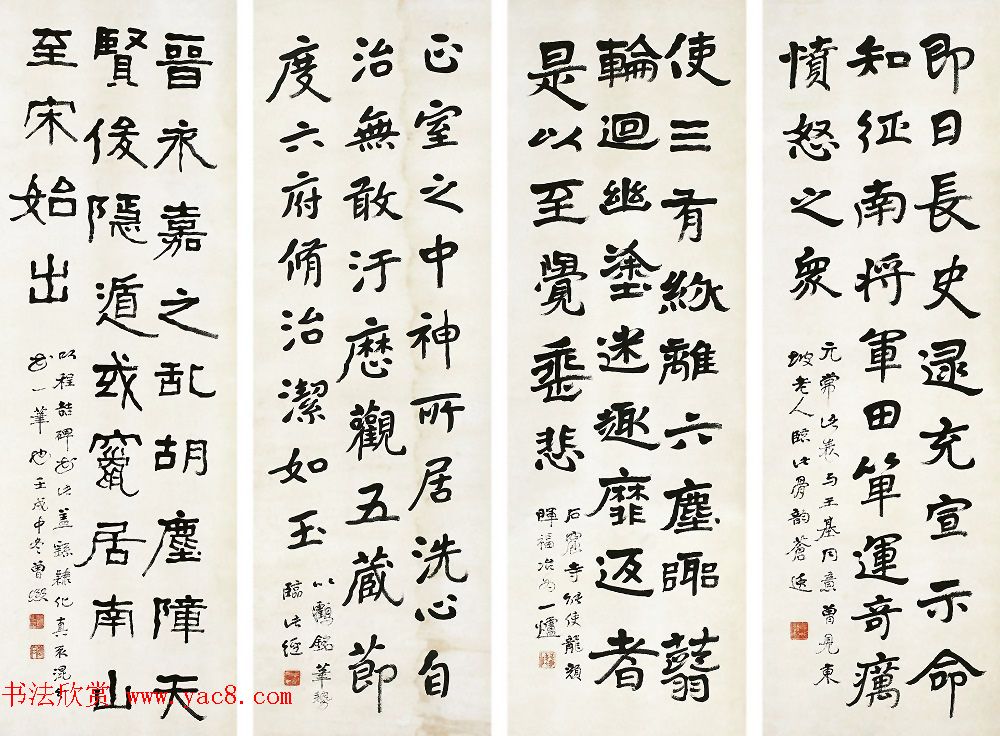 即日長史逯充宣示命
知征南将軍田單運奇癘
憤怒之衆
元常此表与王基同意曾見東
坡老人臨此骨韵蒼逸
使三有離六塵翳
輪迴幽塗迷趣靡返者
是以至覺垂悲
石窟寺能使龍顏
暉福冶為一爐
正室之中神所居洗心自
治無敢汙歷觀五藏節
度六府脩治潔如玉
以鶴銘筆勢
臨此經
晉永嘉之乱胡塵障天
賢俊隱遁或竄居南山
至宋始出
以程喆碑出此蓋繇隸化真
一筆也壬戌中冬曾熙
书法欣赏 www.yac8.com